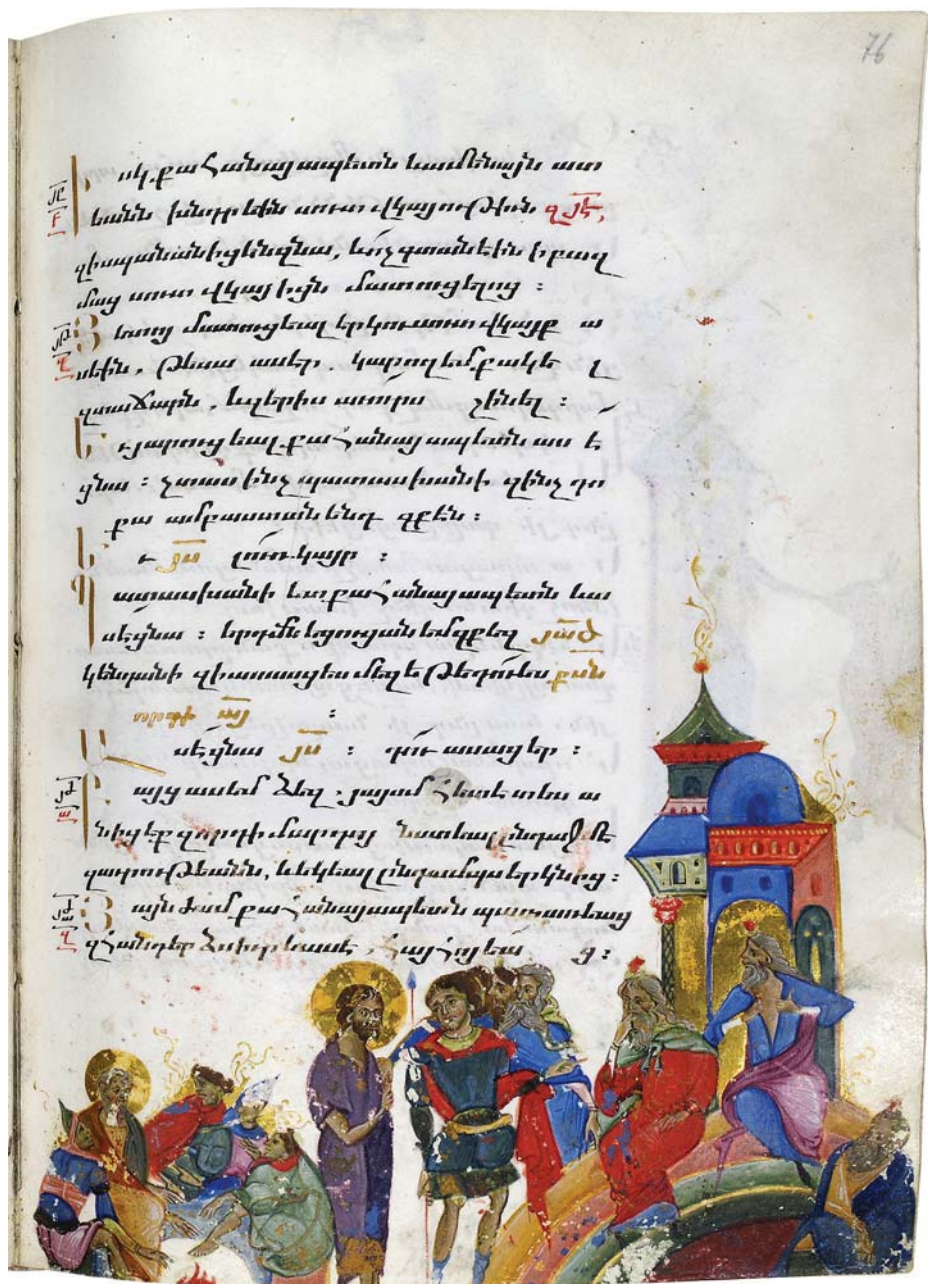 76
Իսկ քահանայապետն եւ ամենայն ատ
եանն խնդրէին սուտ վկայութիւն զյէ,
զի սպանանիցեն զնա, եւ ոչ գտանէին ի բազ
մաց սուտ վկայիցն մատուցելոց :
Յետոյ մատուցեալ երկու սուտ վկայք ա
սէին, թե սա ասէր . կարող եմ քակե լ
զտաճարն, եւ զերիս աւուրս շինել :
Եւ յարուցեալ քահանայապետն աս է
ցնա : չտաս ինչ պատասխանի զինչ դո
քա ամբաստանեն զքէն :
Եւ յս լուռ կայր :
Պատասխանի ետ քահանայապետն եւ ա
սէ ցնա : երդմնեցուցանեմ զքեզ յած
կենդանի զի ասասցես մեզ եթե դու ես քսն
որդի այ :
Ասէ ցնա յս : դու ասացեր :
Բայց ասեմ ձեզ . յայսմ հետէ տես ա
նիցէք զորդի մարդոյ նստեալ ընդ աջմէ
զաւրութեանն, եւ եկեալ ընդ ամպս երկնից :
Յայնժամ քահանայապետն պատառեաց
զհանդերձս իւր եւ ասէ, հայհոյեա ց :